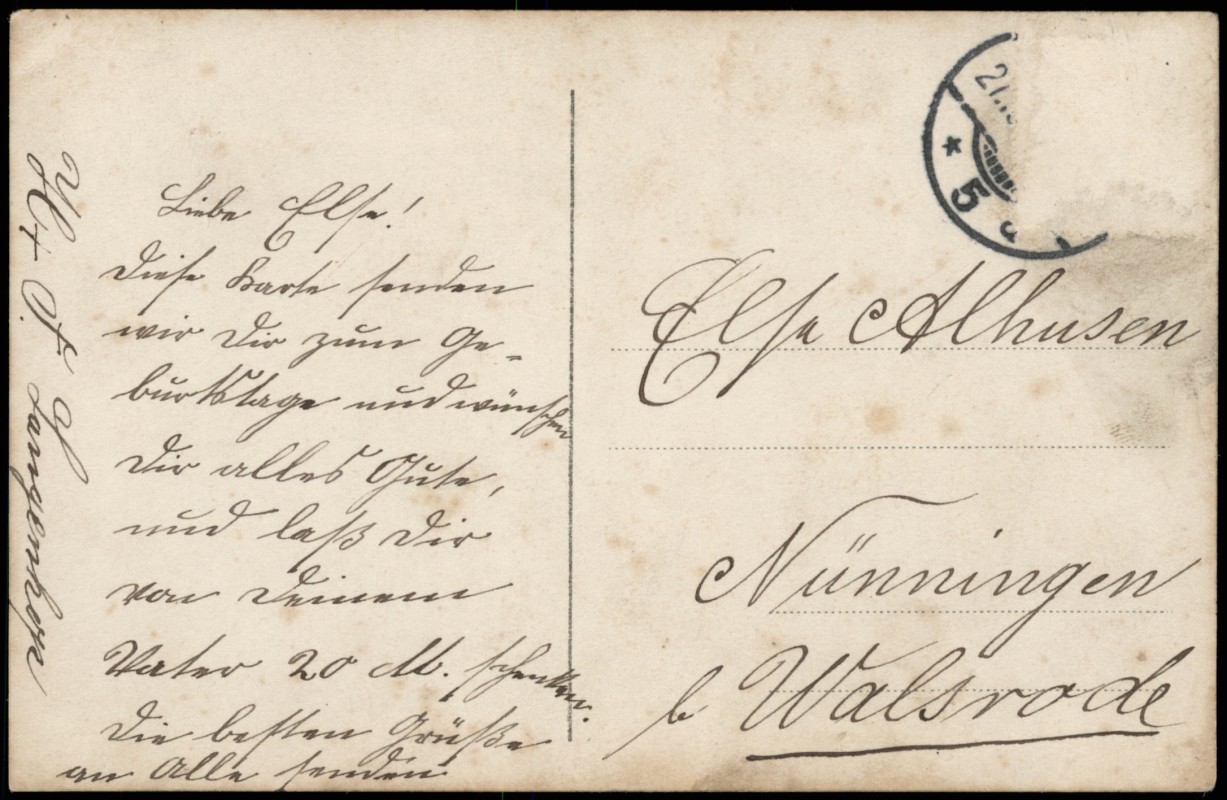 Liebe Else!
Diese Karte senden
wir Dir zum Ge-
burtstage und wünschen
Dir alles Gute,
und laß Dir
von Deinem
Vater 20 M. schenken.
Die besten Grüße
an Alle senden
H + F Langenhop
Else Alhusen
Nünningen
b Walsrode
27.
* 5